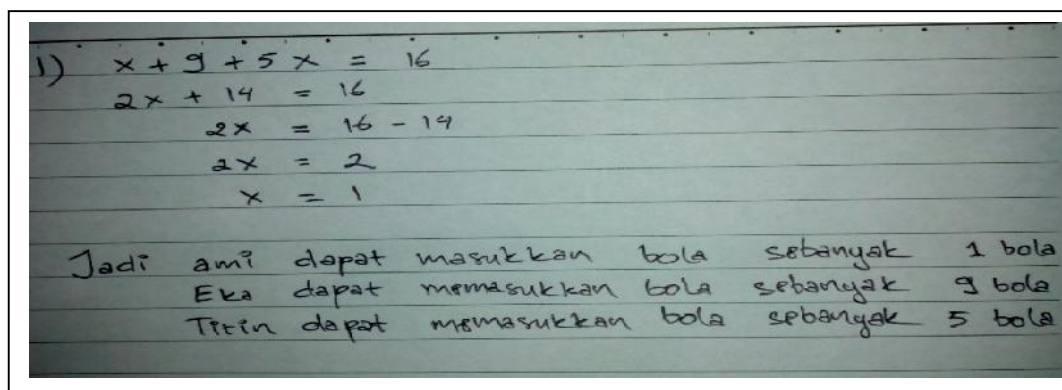 1) x + 9 + 5 x = 16
2x + 14 = 16
2x = 16 - 14
2x = 2
x = 1
Jadi ami dapat masukkan bola sebanyak 1 bola
Eka dapat memasukkan bola sebanyak 9 bola
Titin dapat memasukkan bola sebanyak 5 bola